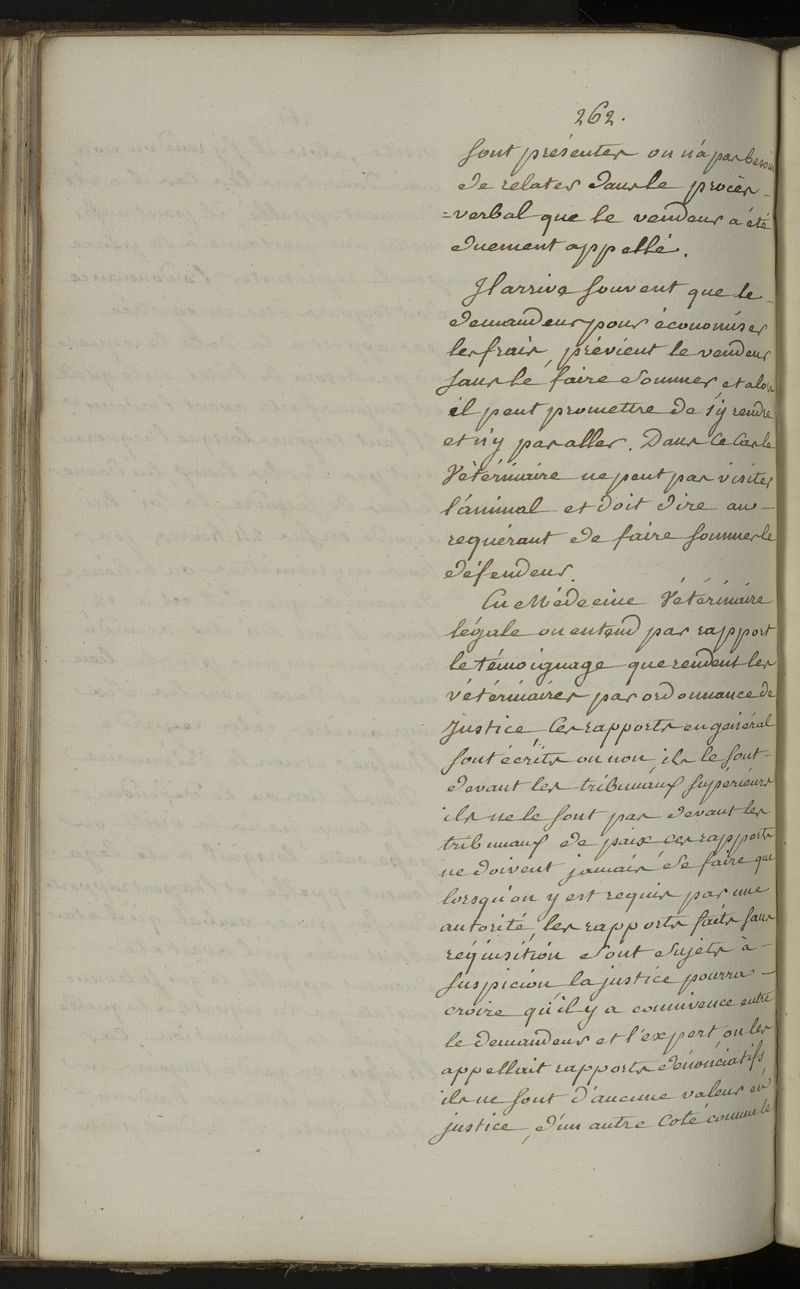 262.
sont présentes on n'a pas besoin
de relater dans le procès-
=verbal que le vendeur a été
duement appellé.
Il arrive souvent que le
demandeur pour économiser
les frais, prévient le vendeur
sans le faire sommer, et alors
il peut promettre de s'y rendre
et n'y pas aller. Dans ce cas le
Vétérinaire ne peut pas visiter
l'animal et doit dire au
requérant de faire sommer le
défendeur.
En Médecine Vétérinaire
légale on entend par rapport
le témoignage que rendent les
vétérinaires par ordonnance de
Justice. Ces rapports en général
sont écrits ou non, ils le sont
devant les tribunaux supérieurs
ils ne le sont pas devant les
tribunaux de paix ces rapports
ne doivent jamais se faire que
lorsqu'on y est requis par une
autorité, les rapports faits sans
réquisition sont sujets à
suspicion, la justice pourra
croire qu'il y a connivence entre
le demandeur et l'expert, on les
appellait rapports dénonciatifs
ils ne sont d'aucune valeur en
justice, d'un autre coté comme le